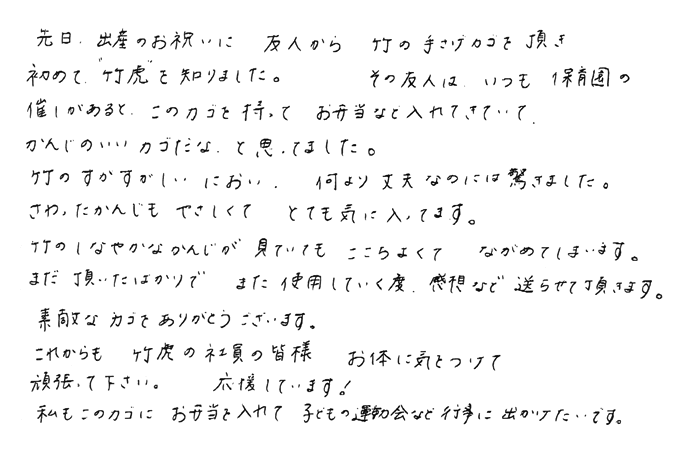 先日、出産のお祝いに 友人から 竹の手さげカゴを頂き
初めて、"竹虎"を知りました。 その友人は、いつも 保育園の
催しがあると、このカゴを持って お弁当など入れてきていて、
かんじのいいカゴだな、と思ってました。
竹のすがすがしい におい、 何より丈夫なのには驚きました。
さわったかんじも やさしくて とても気に入ってます。
竹のしなやかなかんじが 見ていても ここちよくて ながめてしまいます。
まだ 頂いたばかりで また 使用していく度、感想など 送らせて頂きます。
素敵な カゴを ありがとうございます。
これからも 竹虎の社員の皆様 お体に気をつけて
頑張って下さい。 応援しています!
私もこのカゴに お弁当を入れて 子どもの運動会など行事に 出かけたいです。